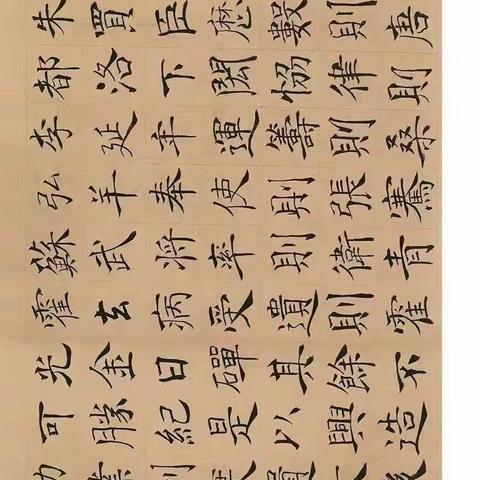 朱買臣歷數則唐
都洛下閎恊律則
李延年運籌則桑
弘羊奉使則張騫
蘇武將率則衛青
霍去病受遺則霍
光金日磾其餘不
可勝紀是以興造